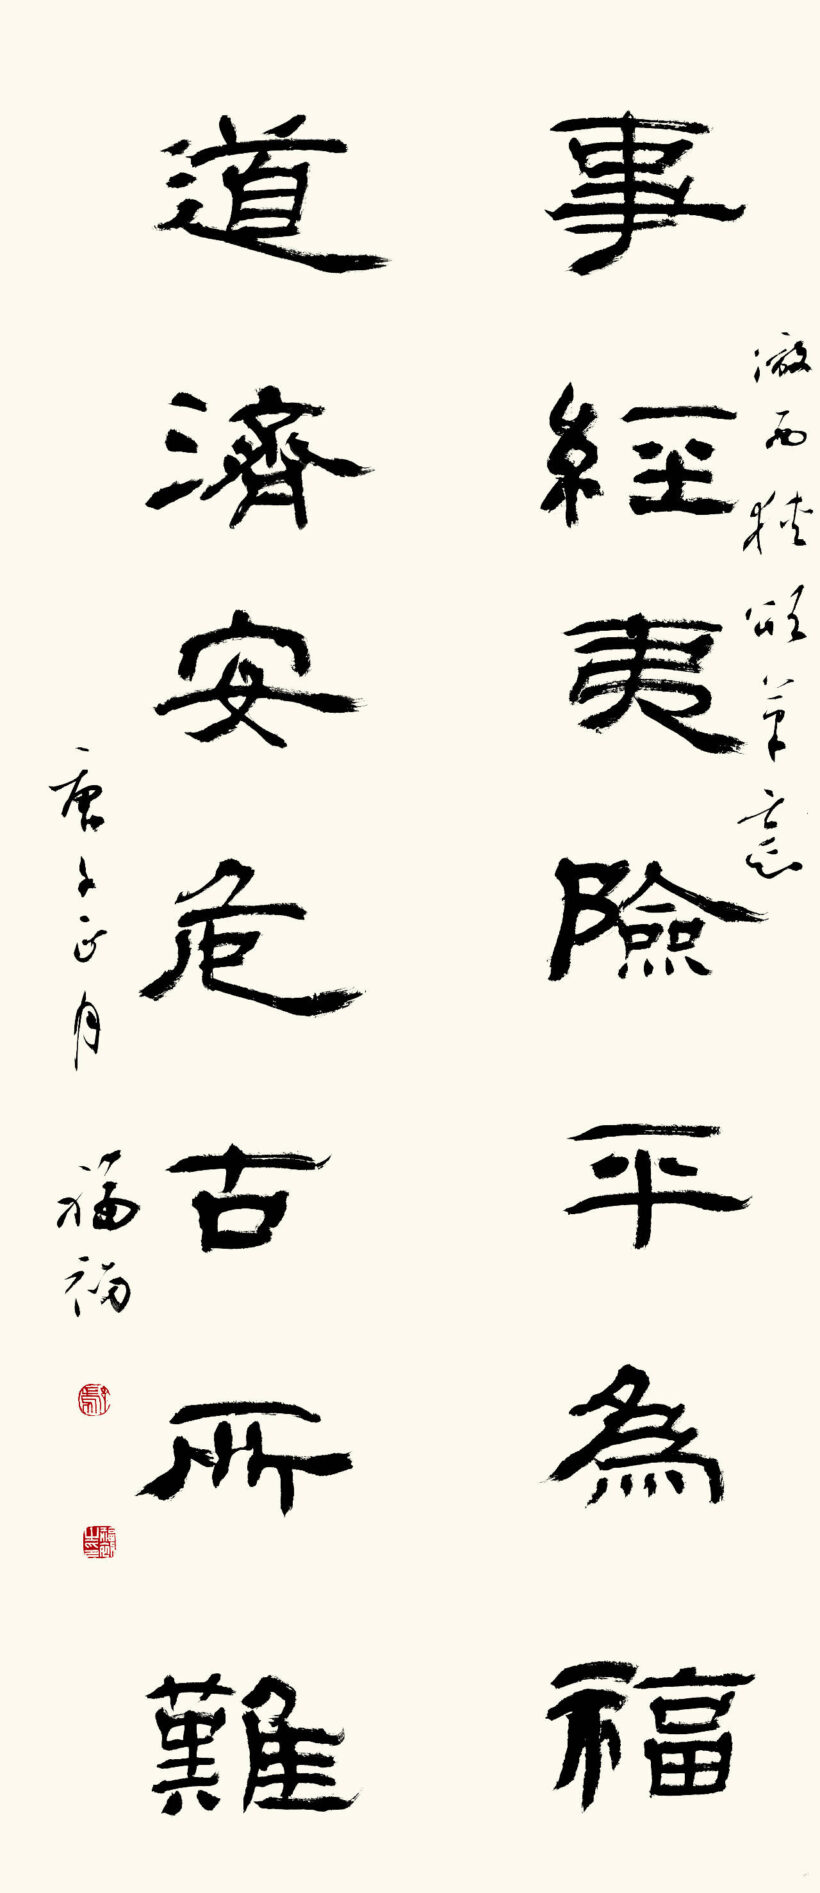 西狹頌筆意
事經夷險平為福
道濟安危古所難
庚子正月 福